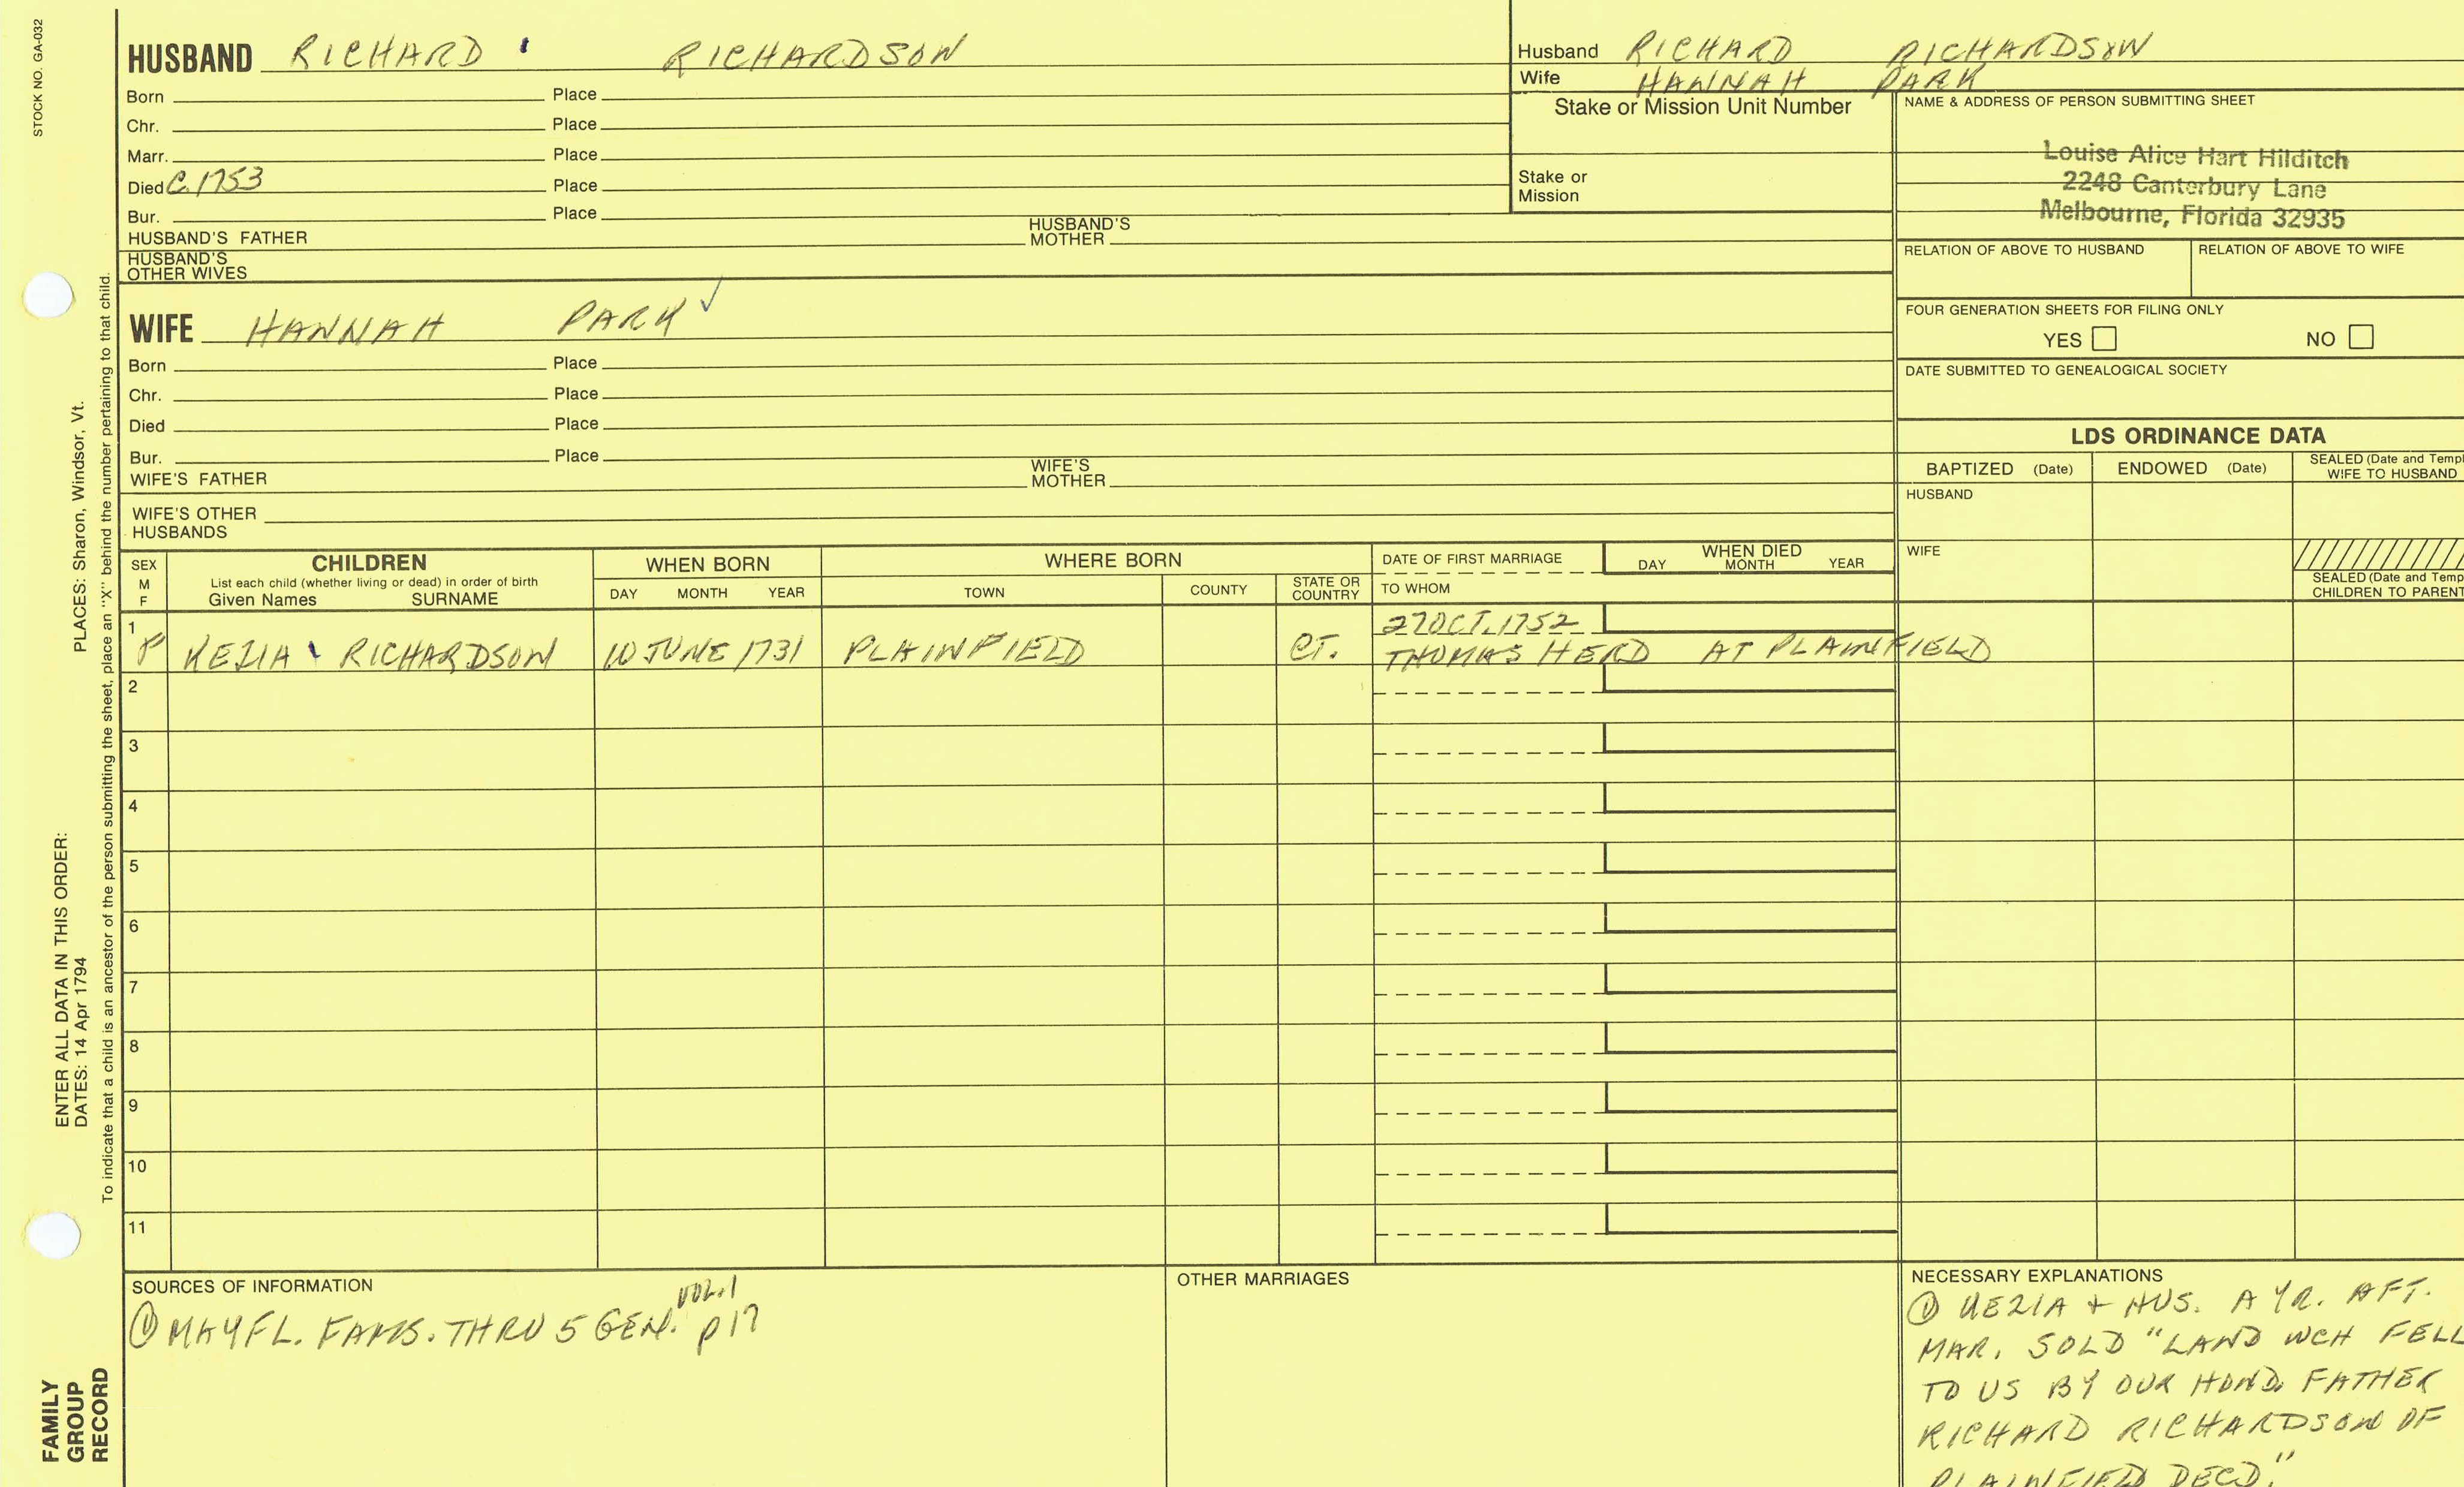 STOCK NO. GA-032
HUSBAND RICHARD RICHARDSON
Born Place
Chr. Place
Marr. Place
Died C. 1753 Place
Bur. Place
HUSBAND'S FATHER HUSBAND'S MOTHER
HUSBAND'S OTHER WIVES
Husband RICHARD RICHARDSON
Wife HANNAH PARK
Stake or Mission Unit Number
Stake or Mission
NAME & ADDRESS OF PERSON SUBMITTING SHEET
Louise Alice Hart Hilditch
2248 Canterbury Lane
Melbourne, Florida 32935
RELATION OF ABOVE TO HUSBAND RELATION OF ABOVE TO WIFE
FOUR GENERATION SHEETS FOR FILING ONLY
YES NO
DATE SUBMITTED TO GENEALOGICAL SOCIETY
WIFE HANNAH PARK ✓
Born Place
Chr. Place
Died Place
Bur. Place
WIFE'S FATHER WIFE'S MOTHER
WIFE'S OTHER HUSBANDS
LDS ORDINANCE DATA
BAPTIZED (Date) ENDOWED (Date) SEALED (Date and Templ
WIFE TO HUSBAND
HUSBAND
WIFE
SEALED (Date and Temp
CHILDREN TO PARENT
SEX M F
CHILDREN
List each child (whether living or dead) in order of birth
Given Names SURNAME
WHEN BORN
DAY MONTH YEAR
WHERE BORN
TOWN COUNTY STATE OR COUNTRY
DATE OF FIRST MARRIAGE
TO WHOM
WHEN DIED
DAY MONTH YEAR
1 F KEZIA RICHARDSON 10 JUNE 1731 PLAINFIELD CT. 27 OCT. 1752
THOMAS HERD AT PLAINFIELD
2
3
4
5
6
7
8
9
10
11
SOURCES OF INFORMATION
VOL. 1
① MAYFL. FAMS. THRU 5 GEN. p17
OTHER MARRIAGES
NECESSARY EXPLANATIONS
① KEZIA + HUS. A YR. AFT.
MAR. SOLD "LAND WCH FELL
TO US BY OUR HOND. FATHER
RICHARD RICHARDSON OF
PLAINFIELD DECD."
PLACES: Sharon, Windsor, Vt.
ENTER ALL DATA IN THIS ORDER:
DATES: 14 Apr 1794
To indicate that a child is an ancestor of the person submitting the sheet, place an "X" behind the number pertaining to that child.
FAMILY
GROUP
RECORD